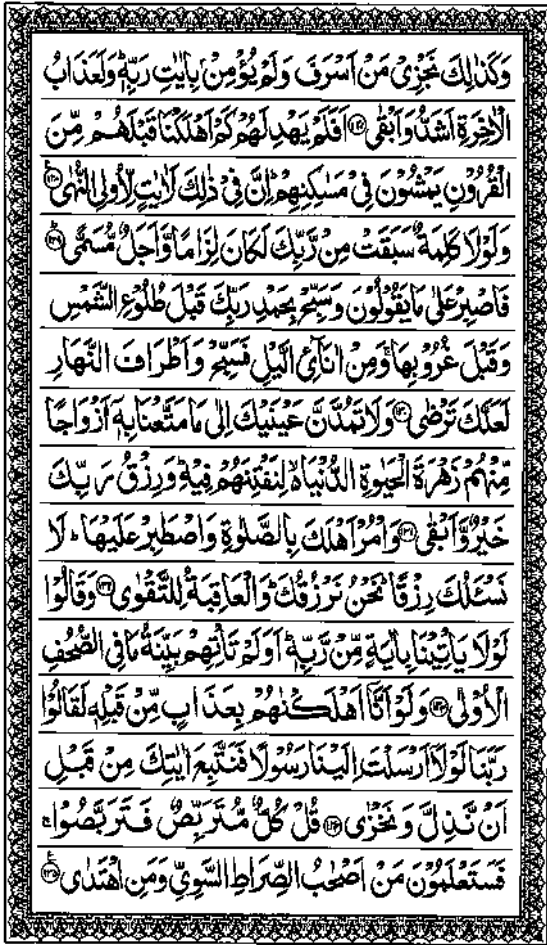 وَكَذٰلِكَ نَجْزِىْ مَنْ اَسْرَفَ وَلَمْ يُؤْمِنْۢ بِاٰيٰتِ رَبِّهٖؕ وَلَعَذَابُ
الْاٰخِرَةِ اَشَدُّ وَاَبْقٰى ﴿۱۲۷﴾ اَفَلَمْ يَهْدِ لَهُمْ كَمْ اَهْلَكْنَا قَبْلَهُمْ مِّنَ
الْقُرُوْنِ يَمْشُوْنَ فِىْ مَسٰكِنِهِمْؕ اِنَّ فِىْ ذٰلِكَ لَاٰيٰتٍ لِّاُولِى النُّهٰى ﴿۱۲۸﴾
وَلَوْلَا كَلِمَةٌ سَبَقَتْ مِنْ رَّبِّكَ لَكَانَ لِزَامًا وَّاَجَلٌ مُّسَمًّى ﴿۱۲۹﴾
فَاصْبِرْ عَلٰى مَا يَقُوْلُوْنَ وَسَبِّحْ بِحَمْدِ رَبِّكَ قَبْلَ طُلُوْعِ الشَّمْسِ
وَقَبْلَ غُرُوْبِهَاۚ وَمِنْ اٰنَآئِ الَّيْلِ فَسَبِّحْ وَاَطْرَافَ النَّهَارِ
لَعَلَّكَ تَرْضٰى ﴿۱۳۰﴾ وَلَا تَمُدَّنَّ عَيْنَيْكَ اِلٰى مَا مَتَّعْنَا بِهٖۤ اَزْوَاجًا
مِّنْهُمْ زَهْرَةَ الْحَيٰوةِ الدُّنْيَا ۙ لِنَفْتِنَهُمْ فِيْهِؕ وَرِزْقُ رَبِّكَ
خَيْرٌ وَّاَبْقٰى ﴿۱۳۱﴾ وَاْمُرْ اَهْلَكَ بِالصَّلٰوةِ وَاصْطَبِرْ عَلَيْهَاؕ لَا
نَسْئَلُكَ رِزْقًاؕ نَحْنُ نَرْزُقُكَؕ وَالْعَاقِبَةُ لِلتَّقْوٰى ﴿۱۳۲﴾ وَقَالُوْا
لَوْلَا يَاْتِيْنَا بِاٰيَةٍ مِّنْ رَّبِّهٖؕ اَوَلَمْ تَاْتِهِمْ بَيِّنَةُ مَا فِى الصُّحُفِ
الْاُوْلٰى ﴿۱۳۳﴾ وَلَوْ اَنَّاۤ اَهْلَكْنٰهُمْ بِعَذَابٍ مِّنْ قَبْلِهٖ لَقَالُوْا
رَبَّنَا لَوْلَاۤ اَرْسَلْتَ اِلَيْنَا رَسُوْلًا فَنَتَّبِعَ اٰيٰتِكَ مِنْ قَبْلِ
اَنْ نَّذِلَّ وَنَخْزٰى ﴿۱۳۴﴾ قُلْ كُلٌّ مُّتَرَبِّصٌ فَتَرَبَّصُوْاۚ
فَسَتَعْلَمُوْنَ مَنْ اَصْحٰبُ الصِّرَاطِ السَّوِىِّ وَمَنِ اهْتَدٰى ﴿۱۳۵﴾